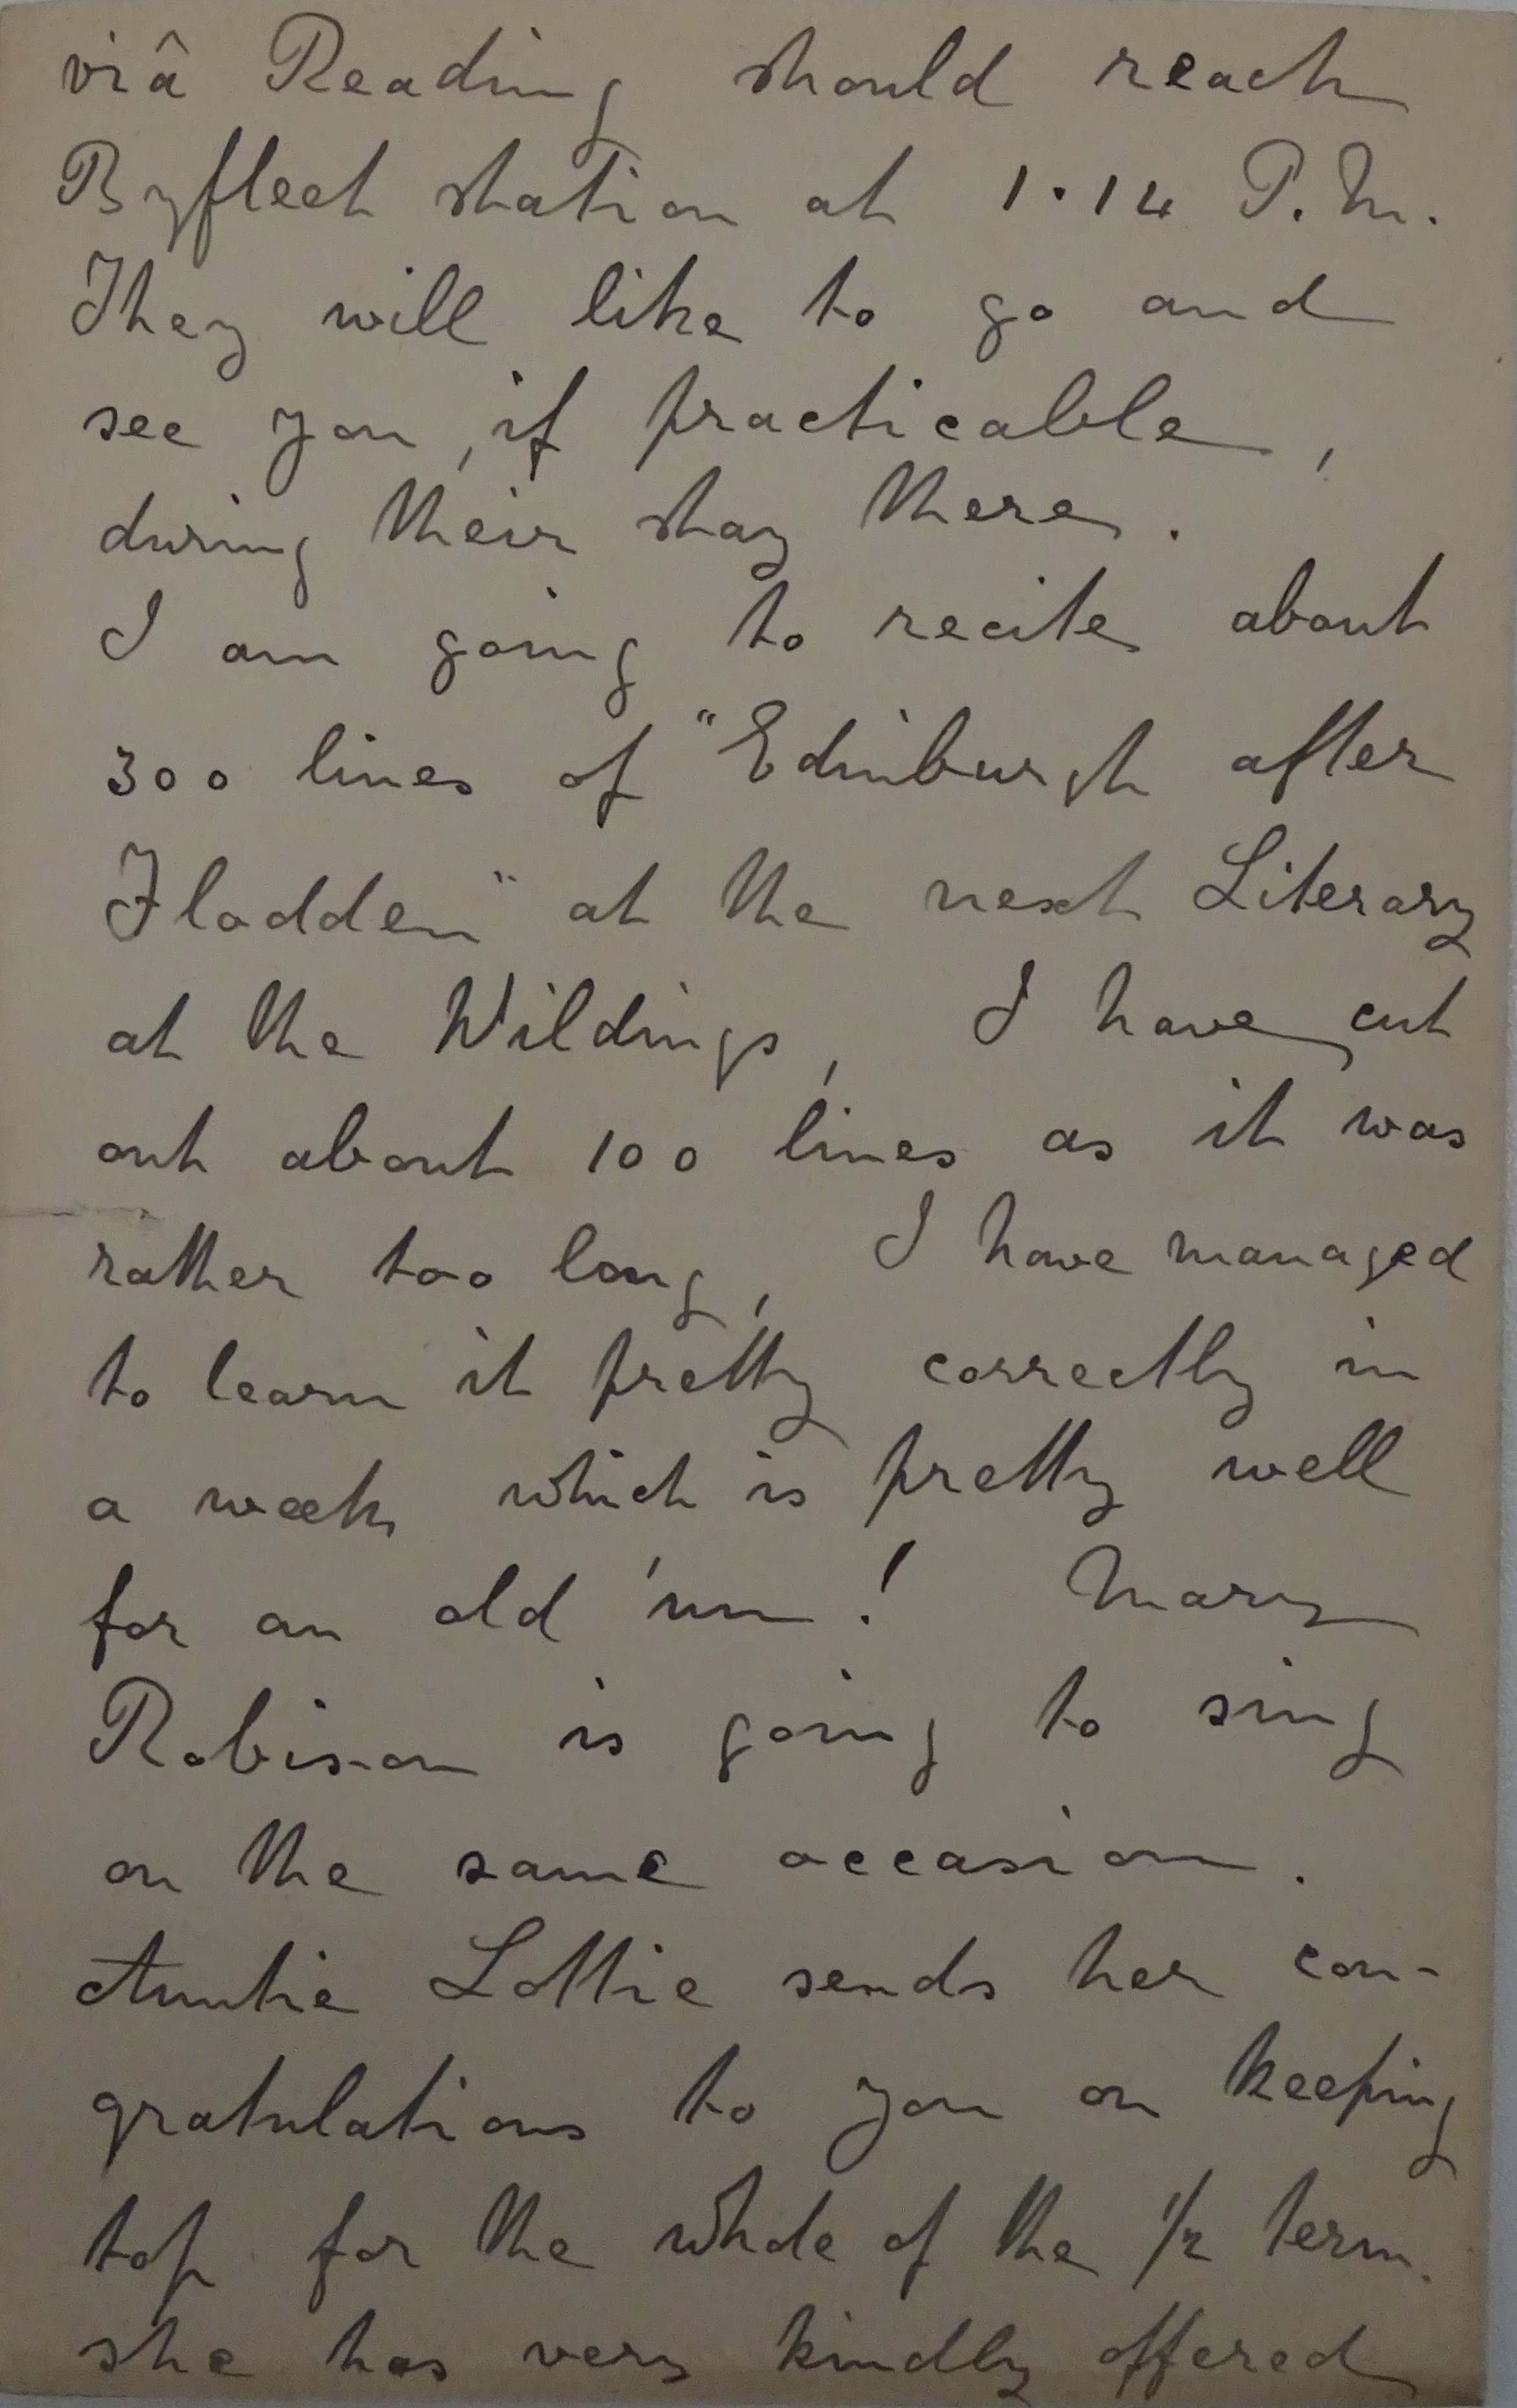 viâ Reading should reach
Byfleet station at 1.14 P.M.
They will like to go and
see you, if practicable,
during their stay there.
I am going to recite about
300 lines of "Edinburgh after
Flodden" at the next Literary
at the Wildings, I have cut
out about 100 lines as it was
rather too long, I have managed
to learn it pretty correctly in
a week which is pretty well
for an old 'un! Mary
Robison is going to sing
on the same occasion.
Auntie Lottie sends her con-
gratulations to you on keeping
top for the whole of the 1/2 term.
she has very kindly offered